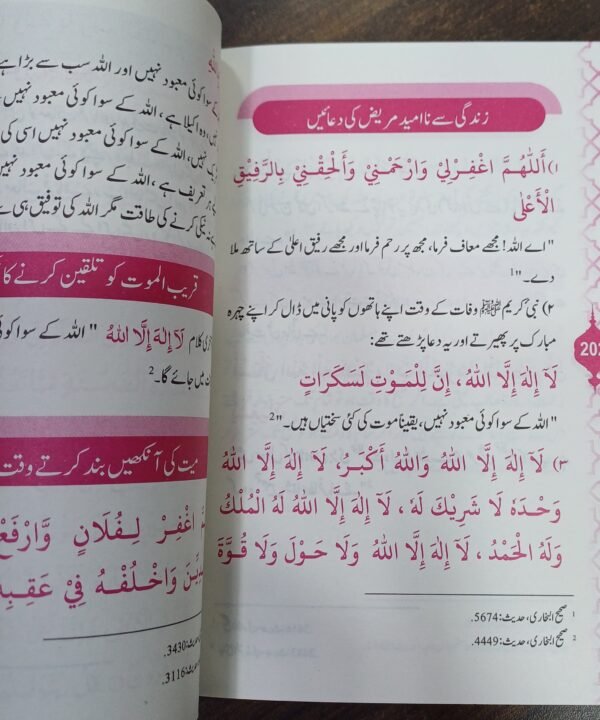 زندگی سے ناامید مریض کی دعائیں
۱) أَللّٰهُمَّ اغْفِرْلِيْ وَارْحَمْنِيْ وَأَلْحِقْنِيْ بِالرَّفِيْقِ
الْأَعْلٰى
"اے اللہ! مجھے معاف فرما، مجھ پر رحم فرما اور مجھے رفیق اعلیٰ کے ساتھ ملا
دے۔"1
۲) نبی کریم ﷺ وفات کے وقت اپنے ہاتھوں کو پانی میں ڈال کر اپنے چہرہ
مبارک پر پھیرتے اور یہ دعا پڑھتے تھے:
لَآ إِلٰهَ إِلَّا اللهُ ، إِنَّ لِلْمَوْتِ لَسَكَرَاتٍ
"اللہ کے سوا کوئی معبود نہیں، یقیناً موت کی کئی سختیاں ہیں۔"2
۳) لَآ إِلٰهَ إِلَّا اللهُ وَاللهُ أَكْبَرُ، لَآ إِلٰهَ إِلَّا اللهُ
وَحْدَهٗ لَا شَرِيْكَ لَهٗ ، لَآ إِلٰهَ إِلَّا اللهُ لَهُ الْمُلْكُ
وَلَهُ الْحَمْدُ ، لَآ إِلٰهَ إِلَّا اللهُ وَلَا حَوْلَ وَلَا قُوَّةَ
1 صحیح البخاری، حدیث: 5674.
2 صحیح البخاری، حدیث: 4449.
202
کے سوا کوئی معبود نہیں اور اللہ سب سے بڑا ہے
وہ اکیلا ہے، اللہ کے سوا کوئی معبود نہیں
نہیں، اللہ کے سوا کوئی معبود نہیں اسی کی
تعریف ہے، اللہ کے سوا کوئی معبود نہیں
نیکی کرنے کی طاقت مگر اللہ کی توفیق ہی سے
قریب الموت کو تلقین کرنے کا
کلام لَآ إِلٰهَ إِلَّا اللهُ "اللہ کے سوا کوئی
میں جائے گا۔2
میت کی آنکھیں بند کرتے وقت
اغْفِرْ لِفُلَانٍ وَّارْفَعْ
وَاخْلُفْهُ فِيْ عَقِبِهٖ
3430.
3116.